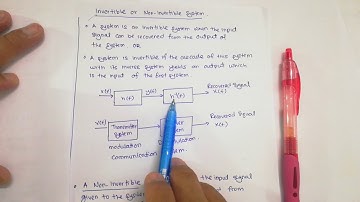 Invertible or Non-invertible System
• A System is an invertible System when the input
Signal can be recovered from the output of
the System OR
• A System is invertible if the cascade of this system
with its inverse system yields an output which
is the input of the first system
x(t) h(t) y(t) h⁻¹(t) Recovered Signal
x(t)
x(t) Transmitter
System Recovered Signal
x(t)
modulation
Communication
• A Non-Invertible the input signal
given to the from